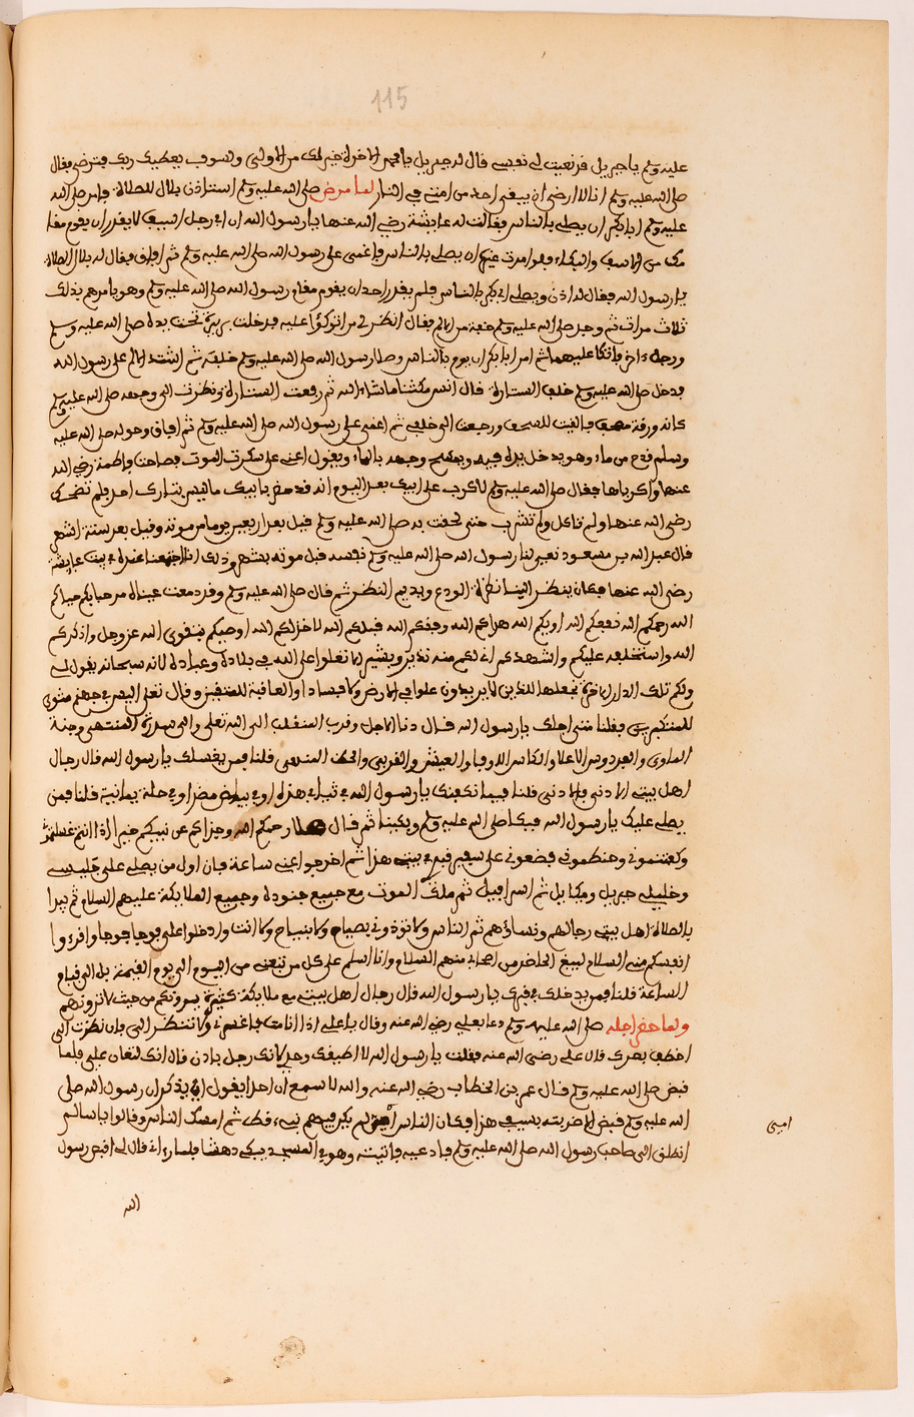 115
عليه وسلم يا جبريل قد نعيت لي نفسي قال له جبريل يا محمد الاخرة خير لك من الاولى ولسوف يعطيك ربك فترضى فقال
صلى الله عليه وسلم اذا لا ارضى ان يبقى احد من امتي في النار لما مرض صلى الله عليه وسلم استاذن بلال للصلاة فامر صلى الله
عليه وسلم ابا بكر ان يصلي بالناس فقالت له عايشة رضي الله عنها يا رسول الله ان ابي رجل اسيف لا يقدر ان يقوم مقا
مك من الاسف والبكاء فلو امرت غيره ان يصلي بالناس فاغمي على رسول الله صلى الله عليه وسلم ثم افاق فقال له بلال الصلاة
يا رسول الله فقال له اذن ويصلي ابي بكر بالناس فلم يقدر احد ان يقوم مقام رسول الله صلى الله عليه وسلم وهو يامرهم بذلك
ثلاث مرات ثم وجد صلى الله عليه وسلم خفة من الالم فقال انظر لي من اتوكؤا عليه فدخلت بريرة تحت يده صلى الله عليه وسلم
ورجل اخر فاتكا عليهما ثم امر ابا بكر ان يوم بالناس وصلى رسول الله صلى الله عليه وسلم خلفه ثم اشتد الالم على رسول الله
فدخل صلى الله عليه وسلم خلف الستارة قال انس مكثنا ما شاء الله ثم رفعت الستارة ونظرت الى وجهه صلى الله عليه وسلم
كانه ورقة مصحف ورجعنا الى خلف ثم اغمي على رسول الله صلى الله عليه وسلم ثم افاق وحوله صلى الله عليه
وسلم قدح من ماء وهو يدخل يده فيه ويمسح وجهه بالماء ويقول اعني على سكرت الموت فصاحت فاطمة رضي الله
عنها واكرباها فقال صلى الله عليه وسلم لا كرب على ابيك بعد اليوم انه قد حضر بابيك ما ليس بتارك احد فلم تضحك
رضي الله عنها ولم تاكل ولم تشرب حتى لحقت به صلى الله عليه وسلم قيل بعد اربعين يوما من موته وقيل بعد ستة اشهر
قال عبد الله بن مسعود نعى لنا رسول الله صلى الله عليه وسلم نفسه قبل موته بشهر وذلك انا اجتمعنا عنده في بيت عايشة
رضي الله عنها فكان ينظر الينا نظرة الودع ويديم النظر ثم قال صلى الله عليه وسلم وقد دمعت عيناه مرحبا بكم حياكم
الله رحمكم الله نفعكم الله اويكم الله هداكم الله وفقكم الله قبلكم الله لا خذلكم الله اوصيكم بتقوى الله عز وجل واذكركم
الله واستخلفه عليكم واشهدكم اني لكم منه نذير وبشير الا تعلوا على الله في بلاده وعباده لانه سبحانه يقول لي
ولكم تلك الدار الاخرة نجعلها للذين لا يريدون علوا في الارض ولا فسادا والعاقبة للمتقين وقال تعلى اليس في جهنم مثوى
للمتكبرين فقلنا متى اجلك يا رسول الله قال دنا الاجل وقرب المنقلب الى الله تعلى والى سدرة المنتهى وجنة
الماوى والفردوس الاعلا والكاس الاوفا والعيش والقربى والحظ المنتهى قلنا فمن يغسلك يا رسول الله قال رجال
اهل بيتي الادنى فالادنى قلنا فيما نكفنك يا رسول الله في ثيابي هذه او في بياض مصر او في حلة يمانية قلنا فمن
يصلي عليك يا رسول الله فبكا صلى الله عليه وسلم وبكينا ثم قال رحمكم الله وجزاكم عن نبيكم خيرا اذا انتم غسلتموني
وكفنتموني وحنطموني فضعوني على سرير في بيتي هذا ثم اخرجوا عني ساعة فان اول من يصلي علي جليسي
وخليلي جبريل وميكايل ثم اسرافيل ثم ملك الموت مع جميع جنوده وجميع الملايكة عليهم السلام ثم يبدا
بالصلاة اهل بيتي رجالهم ونساؤهم ثم الناس ولا توذوني بصياح ولا بنياح ولا انت وادخلوا علي فوجا فوجا واقرءوا
انفسكم مني السلام ليبلغ الحاضر من اصحابي منهم السلام وانا اسلم على كل من تبعني من اليوم الى يوم القيمة بل الى قيام
الساعة قلنا فمن يدخلك في قبرك يا رسول الله قال رجال اهل بيتي مع ملايكة كثيرة يرونكم من حيث لا ترونهم
ولما حضر اجله صلى الله عليه وسلم دعا بعلي رضي الله عنه وقال يا علي اذا انا مت فاغسلني ولا تنتظر الي فان نظرت الي
اخطف بصرك قال علي رضي الله عنه فقلت يا رسول الله لا اطيقك وحدي لانك رجل بادن قال انك لتعان علي فلما
قبض صلى الله عليه وسلم قال عمر بن الخطاب رضي الله عنه والله لا سمع ان احد يقول او يذكر ان رسول الله صلى
الله عليه وسلم قبض الا ضربته بسيفي هذا فكان الناس لم يكن فيهم نبيء قط ثم امسك الناس وقالوا يا سالم
انطلق الى صاحب رسول الله صلى الله عليه وسلم فادعيه فاتيته وهو في المسجد يبكي دهشا فلما رءاني قال لي اقبض رسول
الله